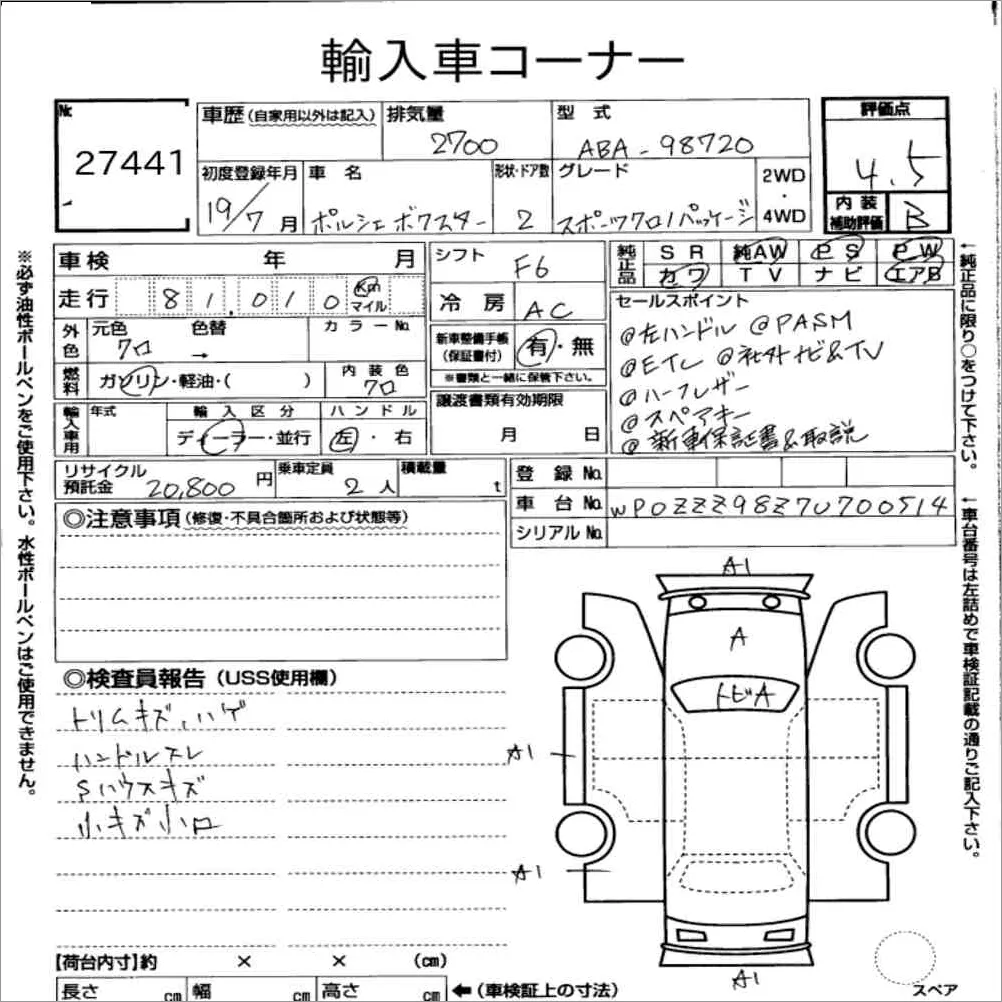 輸入車コーナー
No. 27441
車歴(自家用以外は記入) 排気量 2700 型式 ABA-98720 評価点 4.5
初度登録年月 19/7月 車名 ポルシェ ボクスター 形状・ドア数 2 グレード スポーツクロノパッケージ 2WD・4WD 内装補助評価 B
車検 年 月 シフト F6 純正品 SR 純AW PS PW
カワ TV ナビ エアB
走行 81,010 Km マイル 冷房 AC セールスポイント
@左ハンドル @PASM
外色 元色 クロ 色替 → カラーNo. 新車整備手帳(保証書付) 有・無
※書類と一緒に保管下さい。
@ETC @社外ナビ&TV
燃料 ガソリン・軽油・( ) 内装色 クロ
@ハーフレザー
@スペアキー
@新車保証書&取説
輸入車用 年式 輸入区分 ディーラー・並行 ハンドル 左・右 譲渡書類有効期限 月 日
リサイクル預託金 20,800円 乗車定員 2人 積載量 t
登録No.
車台No. WP0ZZZ98Z7U700514
シリアルNo.
◎注意事項(修復・不具合箇所および状態等)
◎検査員報告(USS使用欄)
トリムキズ、ハゲ
ハンドルスレ
Sハウスキズ
小キズ小凹
A1
A
トビA
A1
A1
A1
スペア
【荷台内寸】約 × × (cm)
長さ cm 幅 cm 高さ cm ←(車検証上の寸法)
※必ず油性ボールペンをご使用下さい。水性ボールペンはご使用できません。
←純正品に限り○をつけて下さい。
←車台番号は左詰めで車検証記載の通りご記入下さい。